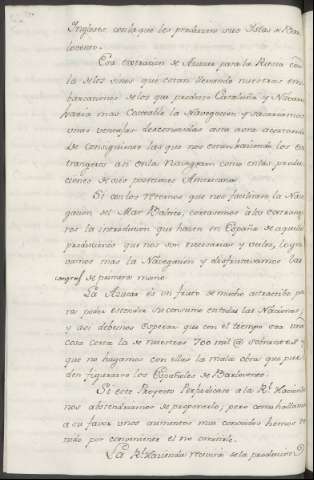 Ingleses con la que les producen sus Islas de Bar-
lovento.
Esta extraccion de Azucar para la Rusia con
la de los vinos que estan llevando nuestras em-
barcaciones de los que produce Cataluña y Navarra
haria mas costeable la Navegacion y sacariamos
unas ventajas desconocidas asta aora acortando
de consiguiente las que nos estan haciendo los ex-
trangeros asi en la Navegacion como en las produc-
ciones de sus posesiones Americanas.
Si con los retornos que nos facilitara la Nave-
gacion del Mar Baltico, cortasemos a los extrange-
ros la introducion que hacen en España de aquellas
producciones que nos son necesarias y utiles, logra-
riamos mas la Navegacion y disfrutariamos las
de primera mano.
La Azucar es un fruto de mucho atractibo pa-
ra poder estender su consumo en todas las Naciones
y asi debemos esperar que con el tiempo sea una
cosa corta la de nuestras 700 mil @ sobrantes y
que no hagamos con ellas la mala obra que pue-
den figurarse los Españoles de Barlovento.
Si este Proyecto Perjudicase a la Rl. Hacienda
nos abstendriamos de proponerlo, pero como hallamos
a su favor unos aumentos muy conocidos hemos te-
nido por conveniente el no omitirlo.
La Rl. Hacienda recivirá de la produccion